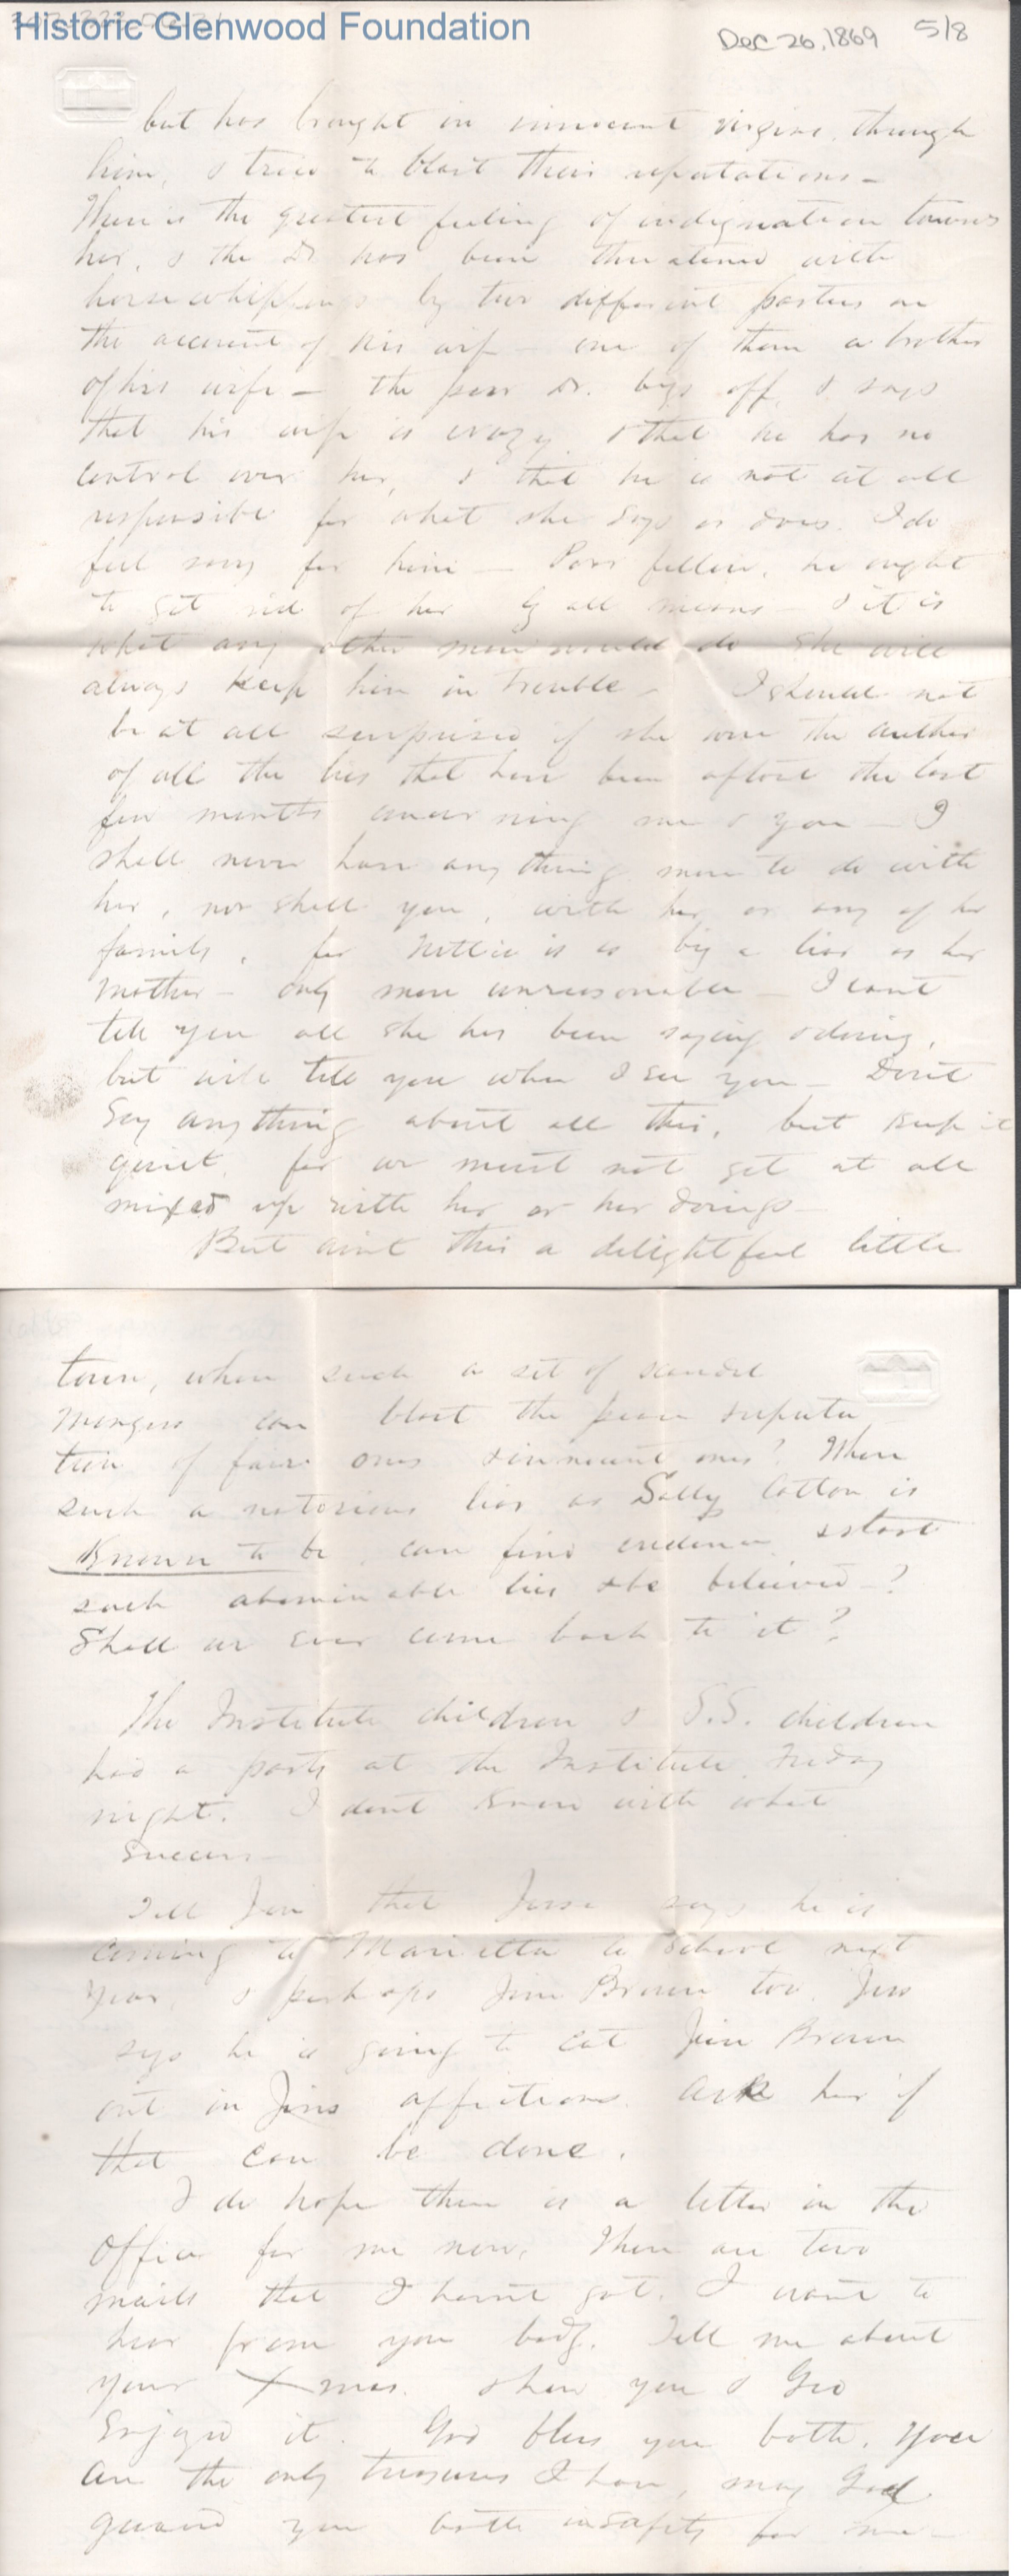 Historic Glenwood Foundation
Dec 26, 1869 5/8
but has brought in innocent virgins, through
him, & tried to blast their reputations -
There is the greatest feeling of indignation towards
her, & the Dr has been threatened with
horsewhippings by two different parties on
the account of his wife one of them a brother
of his wife - the poor Dr. begs off, & says
that his wife is crazy & that he has no
control over her, & that he is not at all
responsible for what she says or does. I do
feel sorry for him - Poor fellow, he ought
to get rid of her by all means - & it is
what any other man would do She will
always keep him in trouble - I should not
be at all surprised if she were the author
of all the lies that have been afloat the last
few months concerning me & you - I
shall never have anything more to do with
her, nor shall you, with her or any of her
family, for Nettie is as big a liar as her
mother - only more unreasonable - I cant
tell you all she has been saying & doing,
but will tell you when I see you - Dont
say anything about all this, but keep it
quiet, for we must not get at all
mixed up with her or her doings -
But aint this a delightful little
town, when such a set of scandal
mongers can blast the reputa
tion of fair ones & innocent ones? When
such a notorious liar as Sally Cotton is
known to be, can find credence & start
such abominable lies & be believed - ?
Shall we ever come back to it?
The Institute children & S.S. children
had a party at the Institute Friday
night. I dont know with what
success -
Tell Jin that Jesse says he is
coming to Marietta to school next
year, & perhaps Jim Brown too. Jess
says he is going to cut Jim Brown
out in Jins affections. Ask her if
that can be done.
I do hope there is a letter in the
office for me now. There are two
mails that I havnt got. I want to
hear from you badly. Tell me about
your Xmas. & how you & Geo
enjoyed it. God bless you both. You
are the only treasures I have, may God
guard you both in safety for me -